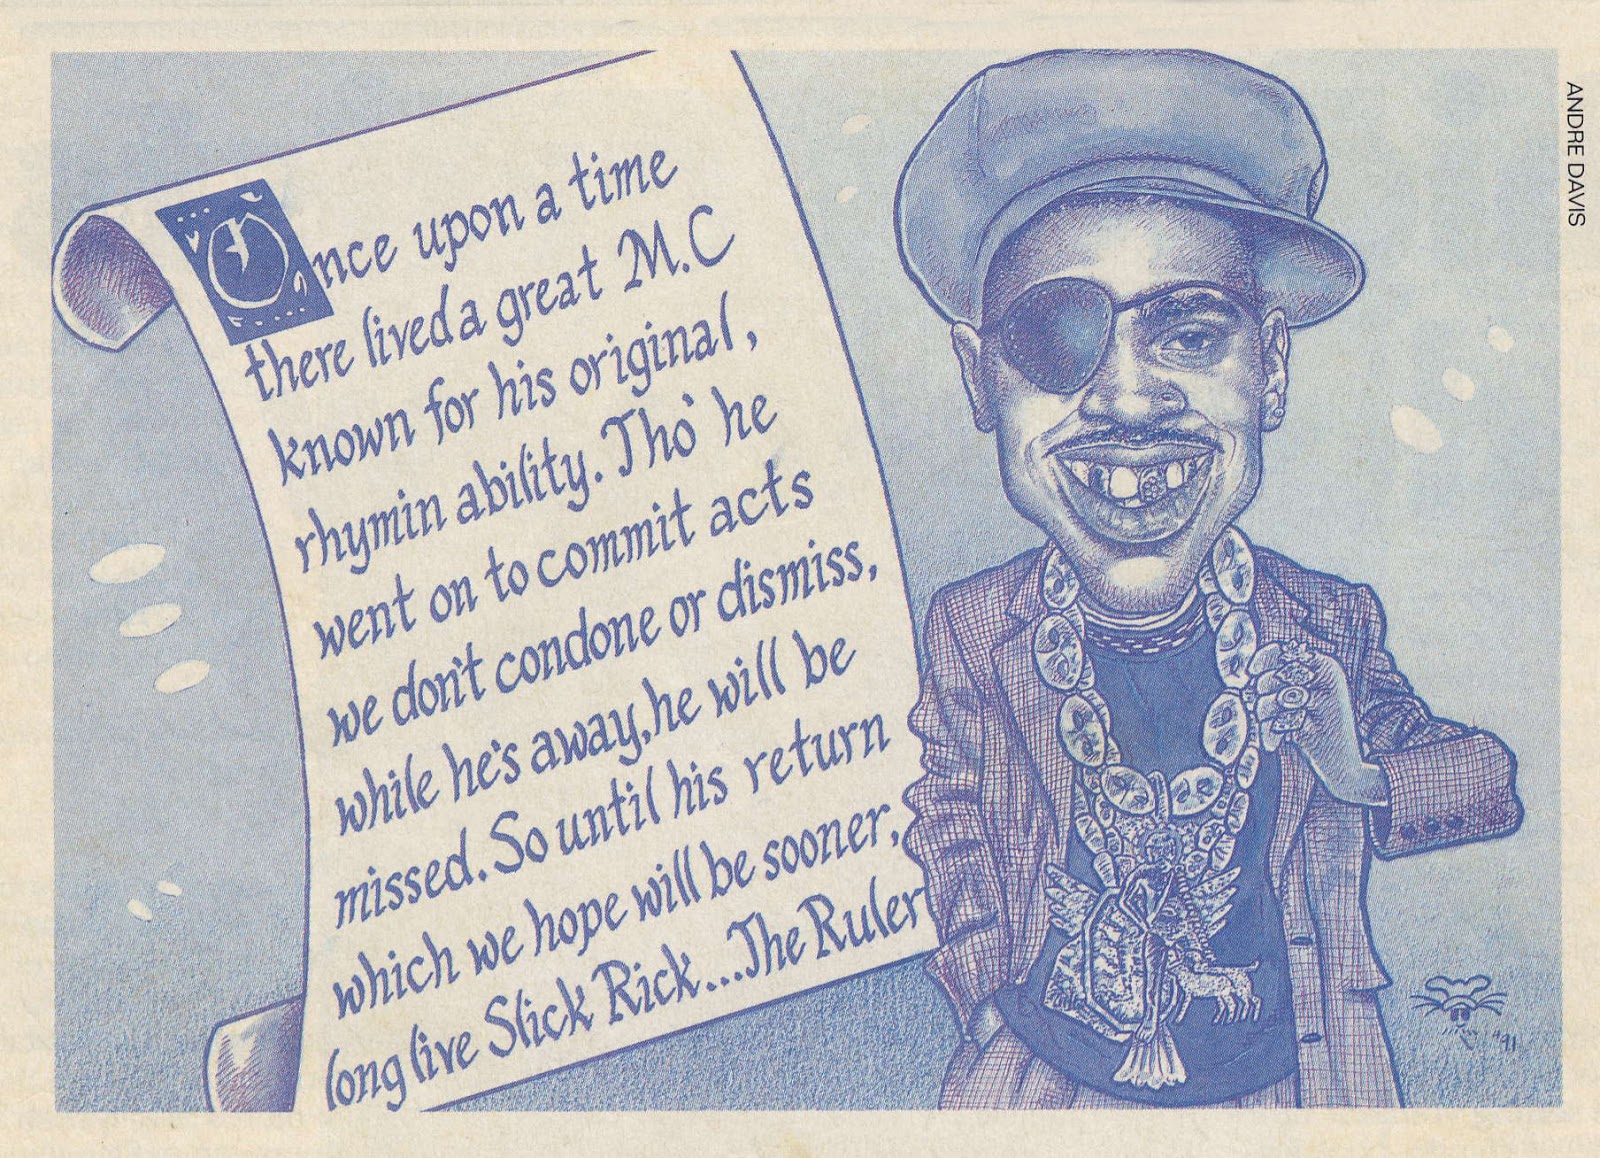 Once upon a time
there lived a great M.C
known for his original,
rhymin ability. Tho' he
went on to commit acts
we don't condone or dismiss,
while he's away, he will be
missed. So until his return
which we hope will be sooner,
long live Slick Rick...The Ruler
ANDRE DAVIS
"91